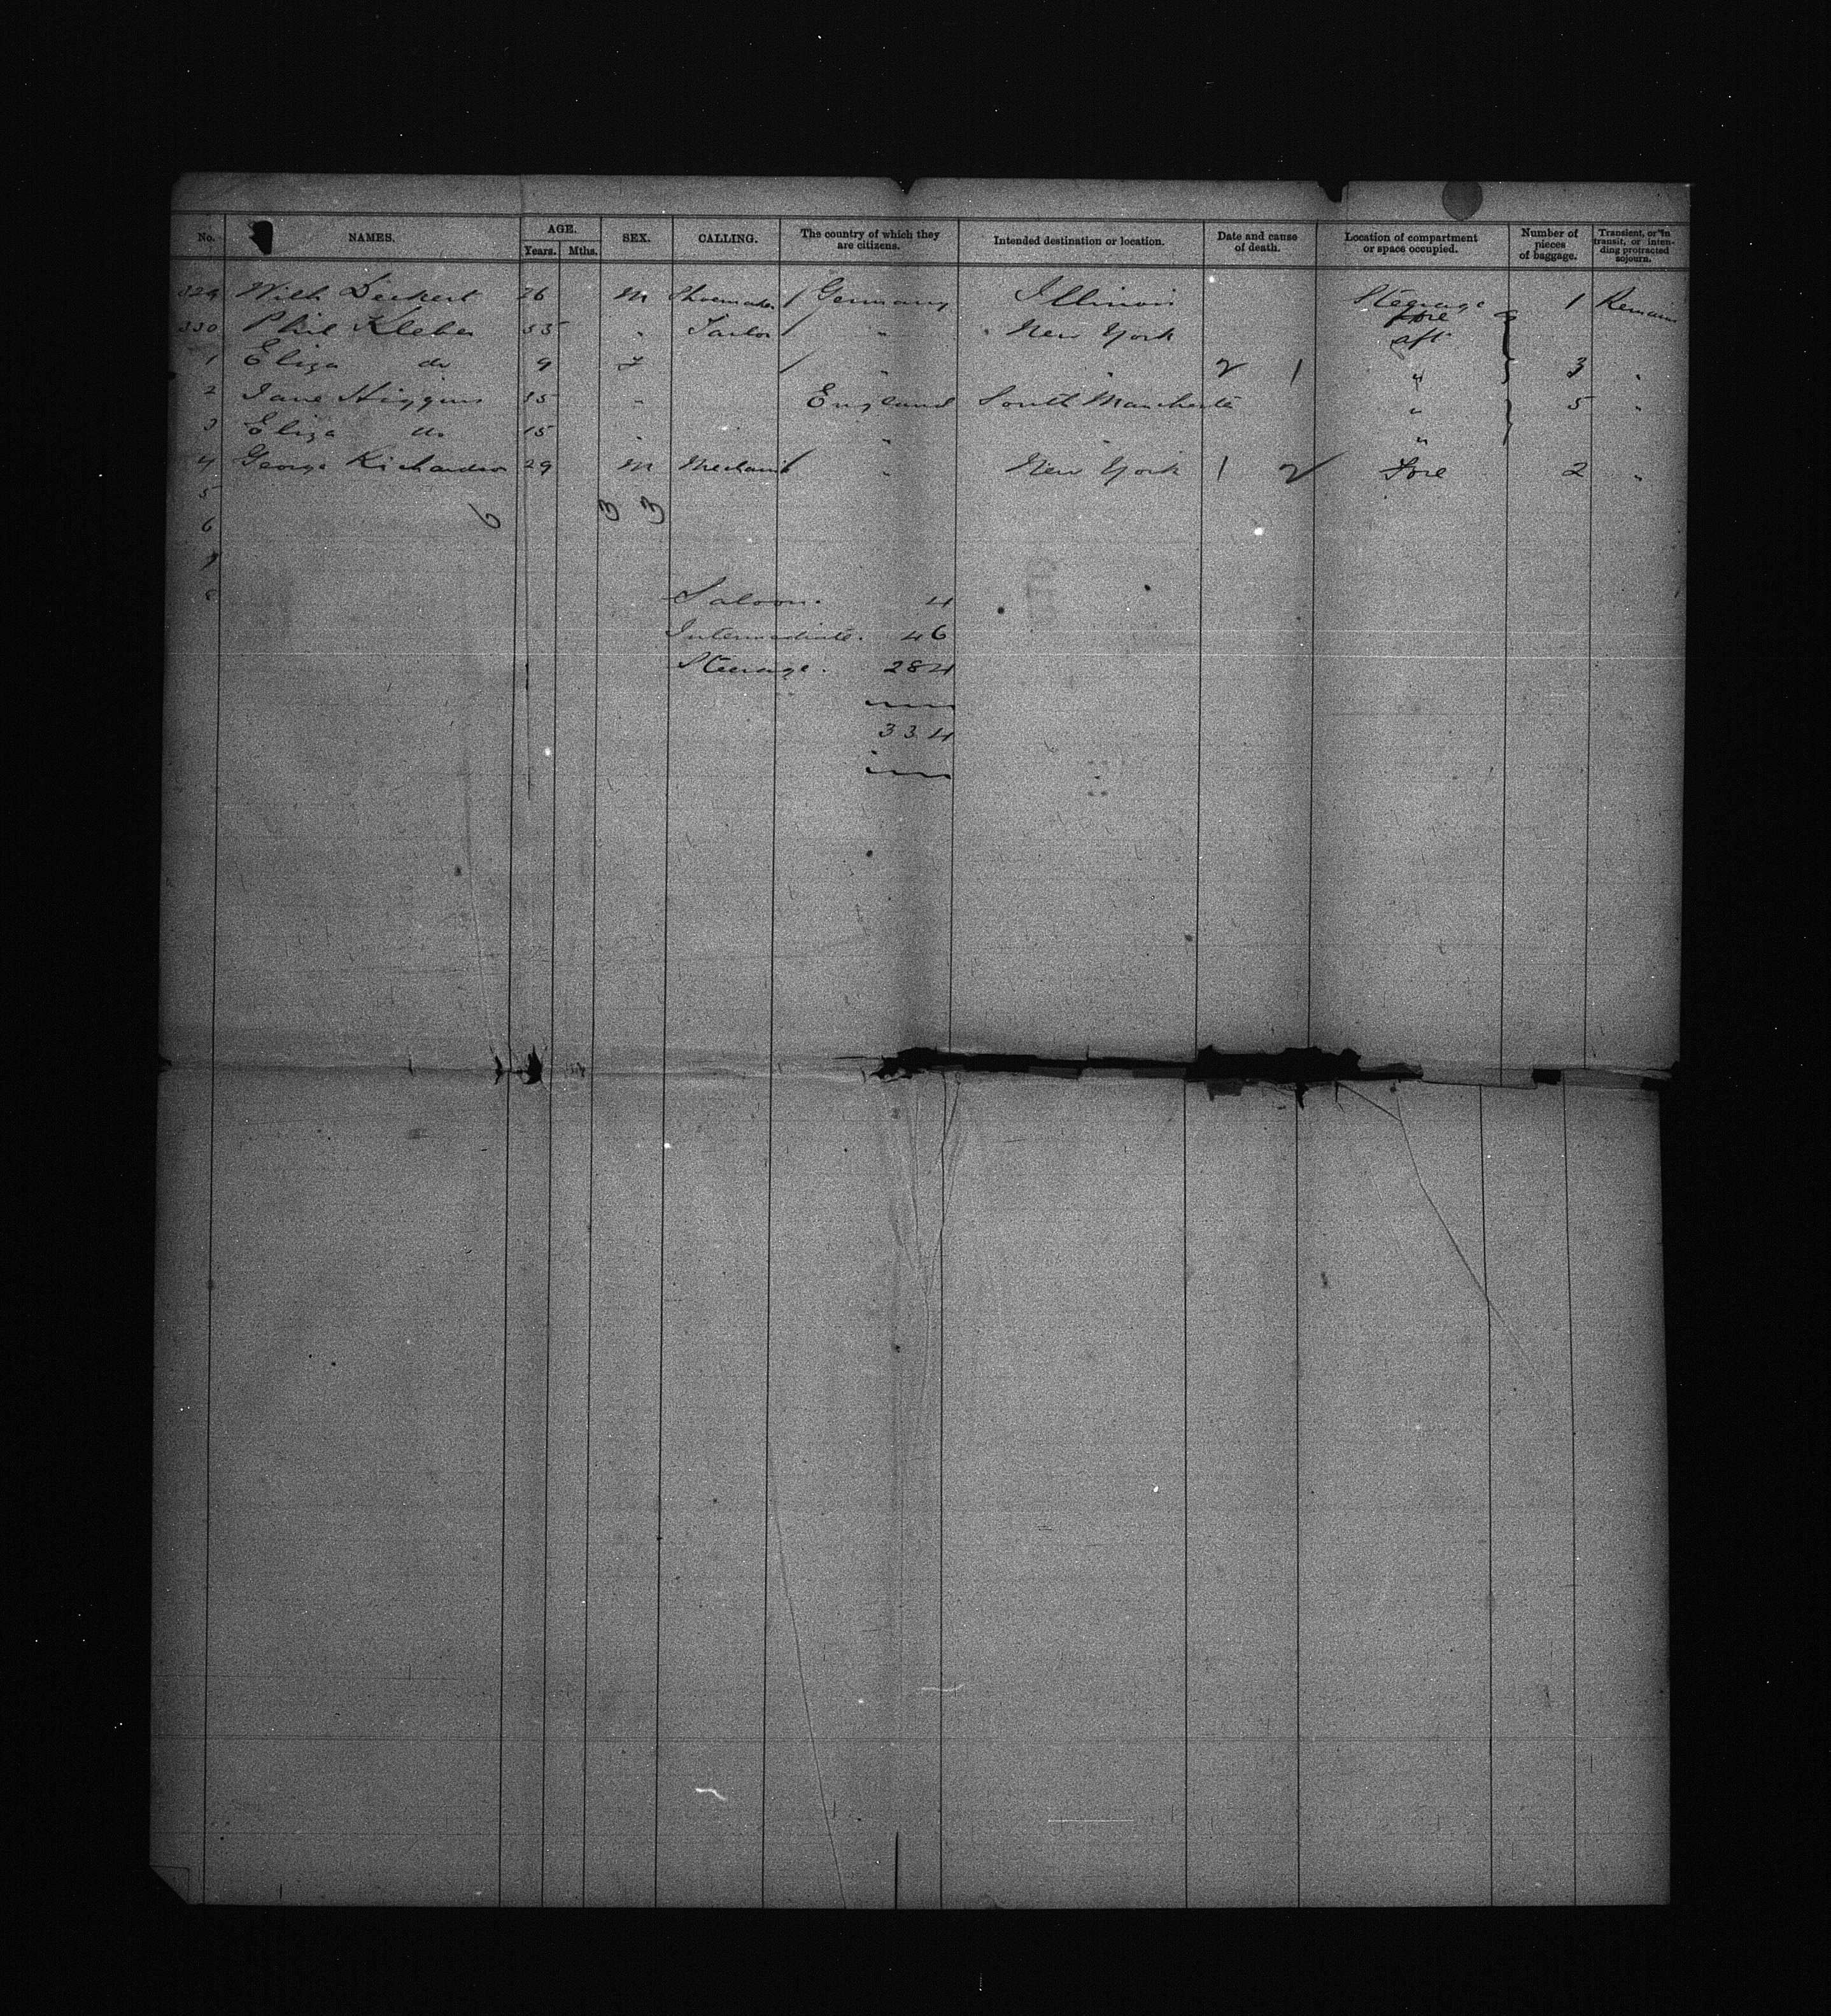 No. NAMES. AGE. Years. Mths. SEX. CALLING. The country of which they are citizens. Intended destination or location. Date and cause of death. Location of compartment or space occupied. Number of pieces of baggage. Transient, or in transit, or intending protracted sojourn.
329 Wilh Deckert 26 M Shoemaker / Germany Illinois Steerage fore 1 Remain
330 Phil Kleber 55 " Tailor / " " New York aft
1 Eliza do 9 F / " " 2 1 " 3 "
2 Jane Higgins 15 " England South Manchester " 5 "
3 Eliza do 15 " " " "
4 George Richardson 29 M Mechanic / " New York 1 2 Fore 2 "
5
6 6 3 3
7
8 Saloon. 4
Intermediate. 46
Steerage. 284
334